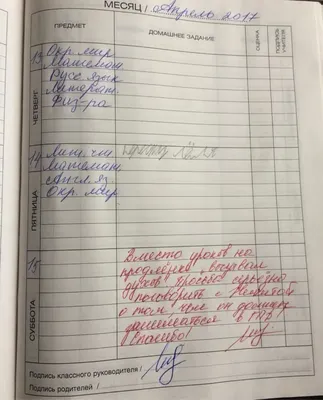 МЕСЯЦ / Апрель 2017
ПРЕДМЕТ ДОМАШНЕЕ ЗАДАНИЕ ОЦЕНКА ПОДПИСЬ УЧИТЕЛЯ
ЧЕТВЕРГ
13 Окр. мир
Математ.
Русс язык
Литерат.
Физ-ра
ПЯТНИЦА
14 Лит. чт
Математ.
Англ. яз
Окр. мир.
СУББОТА
15
Вместо уроков на
продлёнке вызывал
духов. Просьба серьёзно
поговорить с Никитой
о том, чем он должен
заниматься в ГПД!
Спасибо!
Подпись классного руководителя /
Подпись родителей /